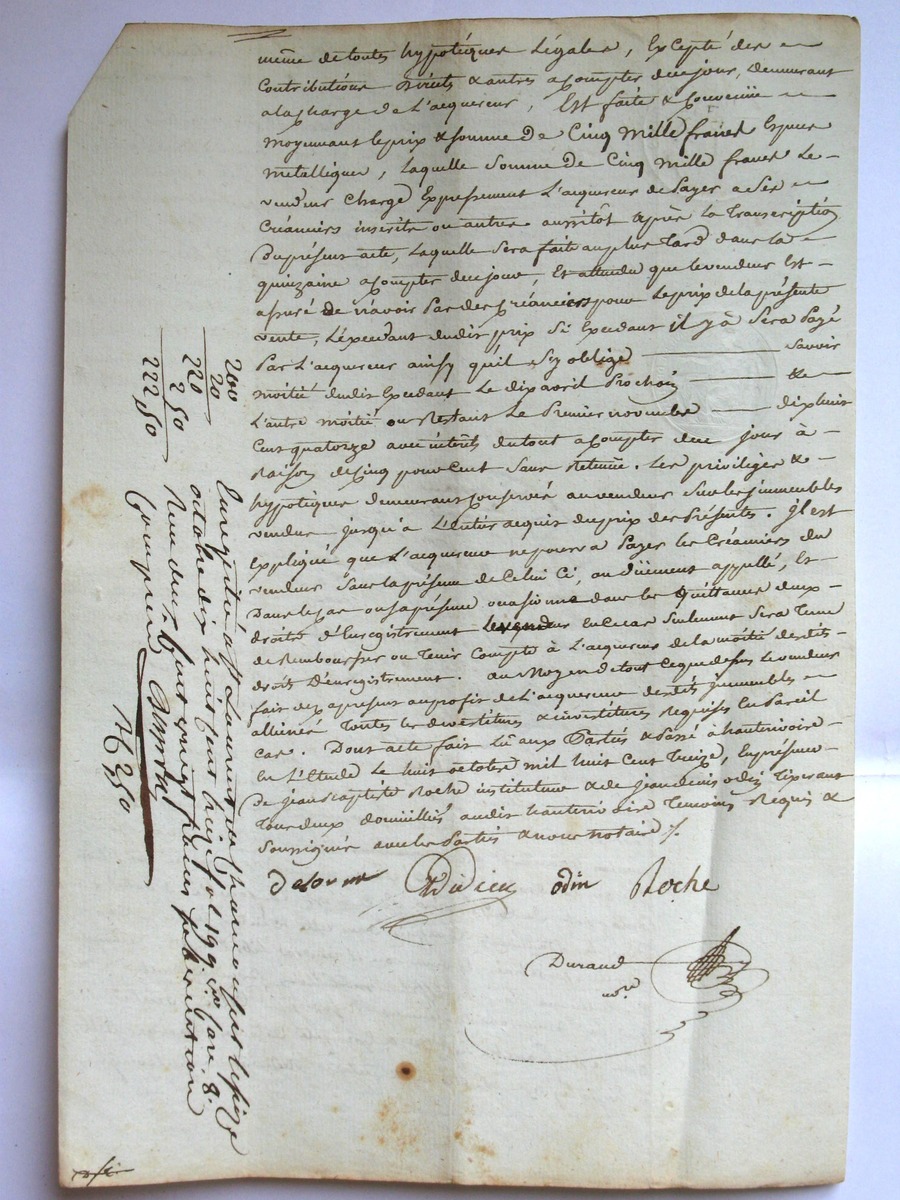 même de toutes hypotéques Légales, Excepté des
Contributions directs & autres a Compter de ce jour, demeurant
a la charge de L'acquereur, Est faite & Convenüe
moyennant le prix & somme de Cinq mille francs Especes
metalliques, laquelle somme de Cinq mille francs Le
vendeur charge Expressement L'acquereur de Payer a Ses
Créanciers inscrits ou autres aussitôt après La Transcription
Du présent acte, Laquelle Sera faite au plus tard dans la
quinzaine a Compter de ce jour, Et attendu que le vendeur Est
assuré de n'avoir Pas des Créanciers pour Le prix de la présente
vente, L'éxcedant dudit prix Si Excedant il y à Sera Payé
Par L'acquereur ainsy qu'il s'y oblige Savoir
moitié dudit Excedant Le dix avril Prochain &
L'autre moitié ou Restant Le Premier novembre dix huit
Cent quatorze avec intérêts du tout a Compter de ce jour à
Raison de Cinq pour Cent Sans Retenüe. Les privilèges &
hypotéques demeurant Conservés au vendeur Sur les immeubles
vendus jusqu'à L'entier acquit du prix des Présentes. Il est
Expliqué que L'acquereur ne pourra Payer les Créanciers du
vendeur Sans la présence de Celui Ci, ou düement appellé, Et
Dans le Cas ou sa présence dans les Quittances
droits d'Enregistrement En ce cas Seulement Sera Tenu
de Rembourser ou Tenir Compte à L'acquereur de la moitié desdits
droits D'enregistrement. au Moyen de tout Ceque dessus Le vendeur
fait dez a present au profit de L'acquereur desdits immeubles
alliénés Toutes les devestitures & investitures Requises En Pareil
Cas. Dont acte fait Lû aux Parties & Passé à hauterivoire
En L'Etude Le huit octobre mil huit Cent Treize, En présence
De jean baptiste Roche instituteur & de jean denis odin Tixerant
Tous deux domiciliés audit hauterivoire Temoins Requis &
Soussignés avec les Parties & nous notaire ./.
odin Roche
Durand
nore
200
20
220
2 50
222,50
Enregistré à St Laurent de Chamousset le seize
octobre dix huit cent treize fol 199 vo Case 8.
Reçu deux cent vingt francs